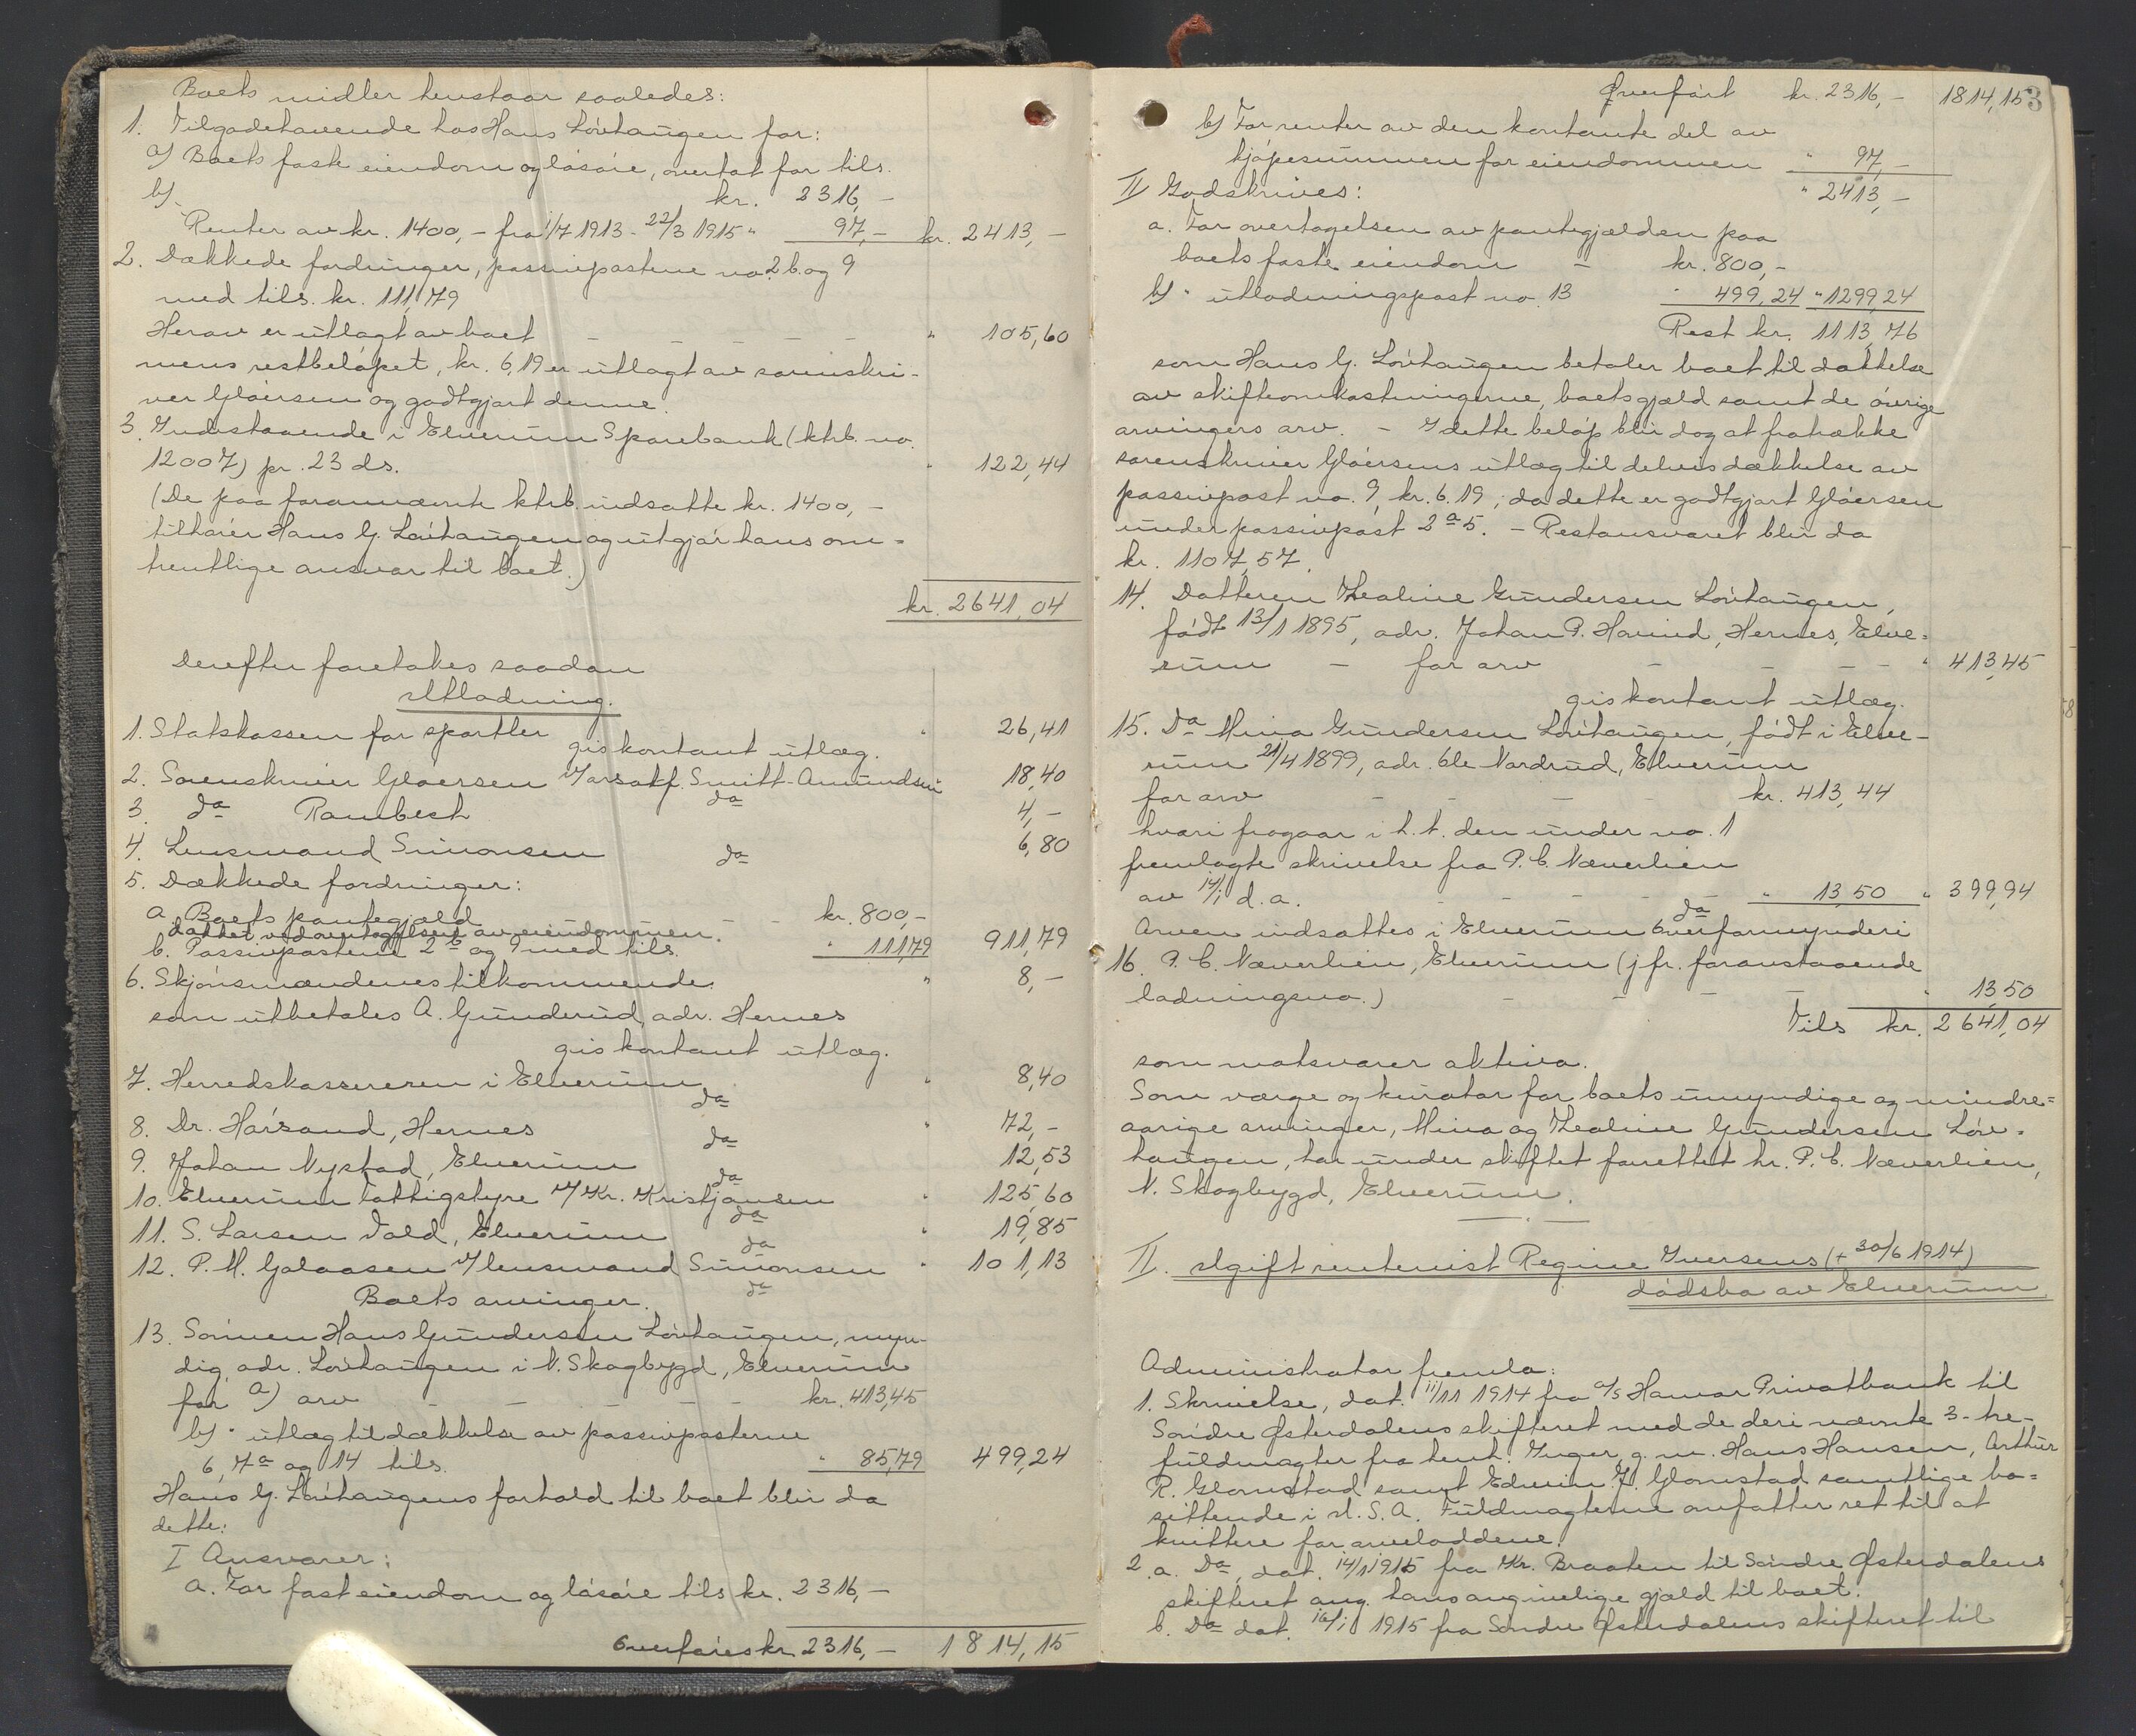 Boets midler henstaar saaledes:
1. Tilgodehavende hos Hans Lövhaugen for:
a) Boets faste eiendom og lösöre, overtat for tils.
kr. 2316,-
b) Renter av kr. 1400,- fra 1/7 1913 - 22/3 1915 " 97,- kr. 2413,-
2. Dækkede fordringer, passivposterne no. 2 b. og 9
med tils. kr. 111,79
Herav er utlagt av boet - - - - - " 105,60
mens restbelöpet, kr. 6,19 er utlagt av sorenskri-
ver Glöersen og godtgjort denne.
3. Indestaaende i Elverum Sparebank (ktrb. no.
12007) pr. 23 ds. " 122,44
(De paa forannævnte ktrb. indsatte kr. 1400,-
tilhörer Hans G. Lövhaugen og utgjör hans om-
trentlige ansvar til boet.)
kr. 2641,04
Derefter foretokes saadan
Utlodning.
1. Statskassen for sportler " 26,41
gis kontant utlæg.
2. Sorenskriver Gloersen v/o.r.sakf. Smitt-Amundsen 18,40
3. do Rambech do 4,-
4. Lensmand Simonsen do 6,80
5. Dækkede fordringer:
a. Boets pantegjæld - - kr. 800,-
dækket ved overtagelsen av eiendommen.
b. Passivposterne 2 b og 9 med tils. " 111,79 911,79
6. Skjönsmændenes tilkommende " 8,-
som utbetales A. Gunderud, adr. Hernes
gis kontant utlæg.
7. Herredskassereren i Elverum " 8,40
do
8. Dr. Hörsand, Hernes do " 72,-
9. Johan Nystad, Elverum do 12,53
10. Elverum Fattigstyre v/ Kr. Kristjansen " 125,60
do
11. S. Larsen Vold, Elverum do " 19,85
12. P. M. Galaasen v/ lensmand Simonsen " 101,13
do
Boets arvinger.
13. Sönnen Hans Gundersen Lövhaugen, myn-
dig, adr. Lövhaugen i N. Skogbygd, Elverum
for a) arv - - - - kr. 413,45
b) " utlæg til dækkelse av passivposterne
6, 7a og 14 tils. " 85,79 499,24
Hans G. Lövhaugens forhold til boet blir da
dette:
I Ansvarer:
a. For fast eiendom og lösöre tils kr. 2316,-
Overföres kr. 2316,- 1814,15
Overfört kr. 2316,- 1814,15
3
b) For renter av den kontante del av
kjöpesummen for eiendommen " 97,-
" 2413,-
II Godskrives:
a. For overtagelsen av pantegjælden paa
boets faste eiendom - kr. 800,-
b) " utlodningspost no. 13 " 499,24 " 1299,24
Rest kr. 1113,76
som Hans G. Lövhaugen betaler boet til dækkelse
av skifteomkostningerne, boets gjæld samt de övrige
arvingers arv. - I dette belöp blir dog at fratrække
sorenskriver Glöersens utlæg til delvis dækkelse av
passivpost no. 9, kr. 6.19, da dette er godtgjort Glöersen
under passivpost 2 a 5. - Restansvaret blir da
kr. 1107,57.
14. Datteren Thealine Gundersen Lövhaugen,
född 13/1 1895, adr. Johan P. Havind, Hernes, Elve-
rum - for arv - - - - " 413,45
gis kontant utlæg.
15. Do Mina Gundersen Lövhaugen, född i Elve-
rum 21/4 1899, adr. Ole Nordrud, Elverum
for arv - - - kr. 413,44
hvori fragaar i h. t. den under no. 1
fremlagte skrivelse fra P. C. Næverlien
av 14/1 d. a. - - - - " 13,50 " 399,94
do
Arven indsættes i Elverum Overformynderi
16. P. C. Næverlien, Elverum (jfr. foranstaaende
lodningsno.) - - - - " 13,50
Tils kr. 2641,04
som motsvarer aktiva.
Som værge og kurator for boets umyndige og mindre-
aarige arvinger, Mina og Thealine Gundersen Löv-
haugen, har under skiftet forrettet hr. P. C. Næverlien,
N. Skogbygd, Elverum.
II. Ugift rentenist Regine Iversens (+ 30/6 1914)
dödsbo av Elverum
Administrator fremla:
1. Skrivelse, dat. 11/11 1914 fra a/s Hamar Privatbank til
Söndre Østerdalens skifteret med de deri nævnte 3 - tre -
fuldmagter fra henh. Inger, g. m. Hans Hansen, Arthur
R. Glomstad samt Edwin J. Glomstad samtlige bo-
sittende i U. S. A. Fuldmagterne omfatter ret til at
kvittere for arveloddene.
2. a. Do, dat. 14/1 1915 fra Kr. Braaten til Söndre Østerdalens
skifteret ang. hans angivelige gjæld til boet.
b. Do dat. 16/1 1915 fra Söndre Østerdalens skifteret til